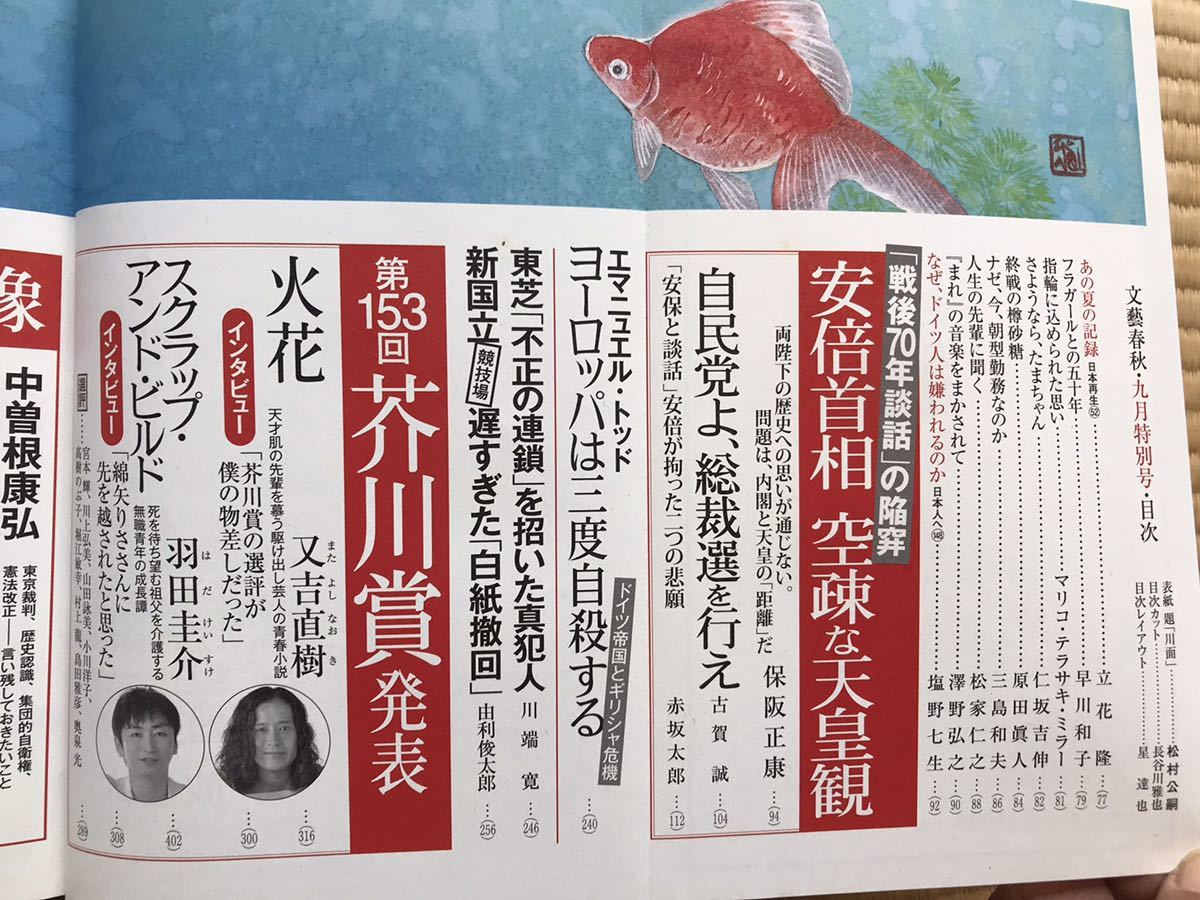 文藝春秋・九月特別号・目次
表紙 題「川面」………松村公嗣
目次カット………長谷川雅也
目次レイアウト………星 達也
あの夏の記録 日本再生52………立花 隆 (77)
フラガールとの五十年………早川和子 (79)
指輪に込められた思い………マリコ・テラサキ・ミラー (81)
さようなら、たまちゃん………仁坂吉伸 (82)
終戦の樽砂糖………原田眞人 (84)
ナゼ、今、朝型勤務なのか………三島和夫 (86)
人生の先輩に聞く………松家仁之 (88)
『まれ』の音楽をまかされて………澤野弘之 (90)
なぜ、ドイツ人は嫌われるのか 日本人へ148………塩野七生 (92)
「戦後70年談話」の陥穽
安倍首相 空疎な天皇観
両陛下の歴史への思いが通じない。
問題は、内閣と天皇の「距離」だ
保阪正康 …(94)
自民党よ、総裁選を行え
古賀 誠 …(104)
「安保と談話」安倍が拘った二つの悲願
赤坂太郎 …(112)
エマニュエル・トッド
ヨーロッパは三度自殺する
ドイツ帝国とギリシャ危機
…(240)
東芝「不正の連鎖」を招いた真犯人
川端 寛 …(246)
新国立競技場 遅すぎた「白紙撤回」
由利俊太郎 …(256)
第153回 芥川賞発表
火花
天才肌の先輩を慕う駆け出し芸人の青春小説
又吉直樹
またよし なおき
…(316)
インタビュー
「芥川賞の選評が
僕の物差しだった」
…(300)
スクラップ・
アンド・ビルド
死を待ち望む祖父を介護する
無職青年の成長譚
羽田圭介
はだ けいすけ
…(402)
インタビュー
「綿矢りささんに
先を越されたと思った」
…(308)
選評……宮本 輝、川上弘美、山田詠美、小川洋子、
高樹のぶ子、堀江敏幸、村上 龍、島田雅彦、奥泉 光
…(289)
象
中曽根康弘
東京裁判、歴史認識、集団的自衛権、
憲法改正――言い残しておきたいこと